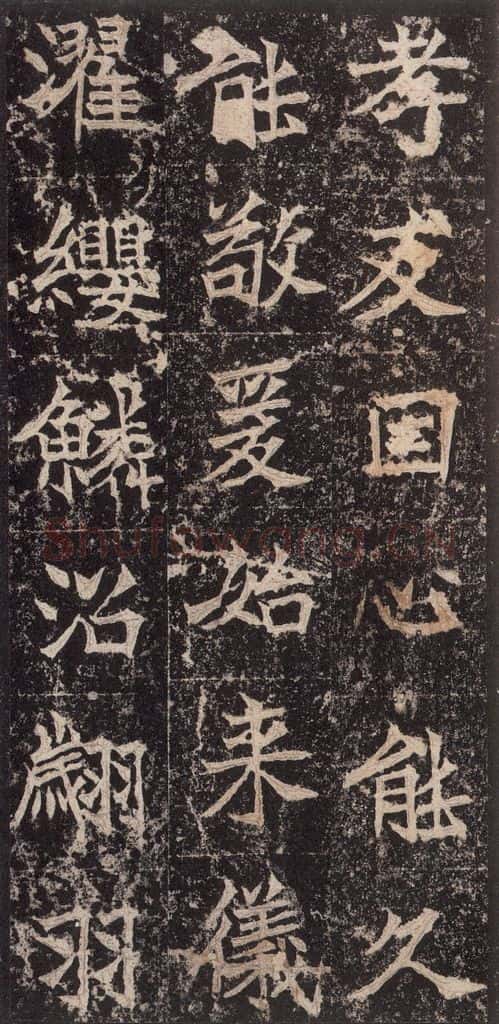 孝友因心能久
能敬爰始来儀
濯纓鱗沼翽羽
Shufawang.CN